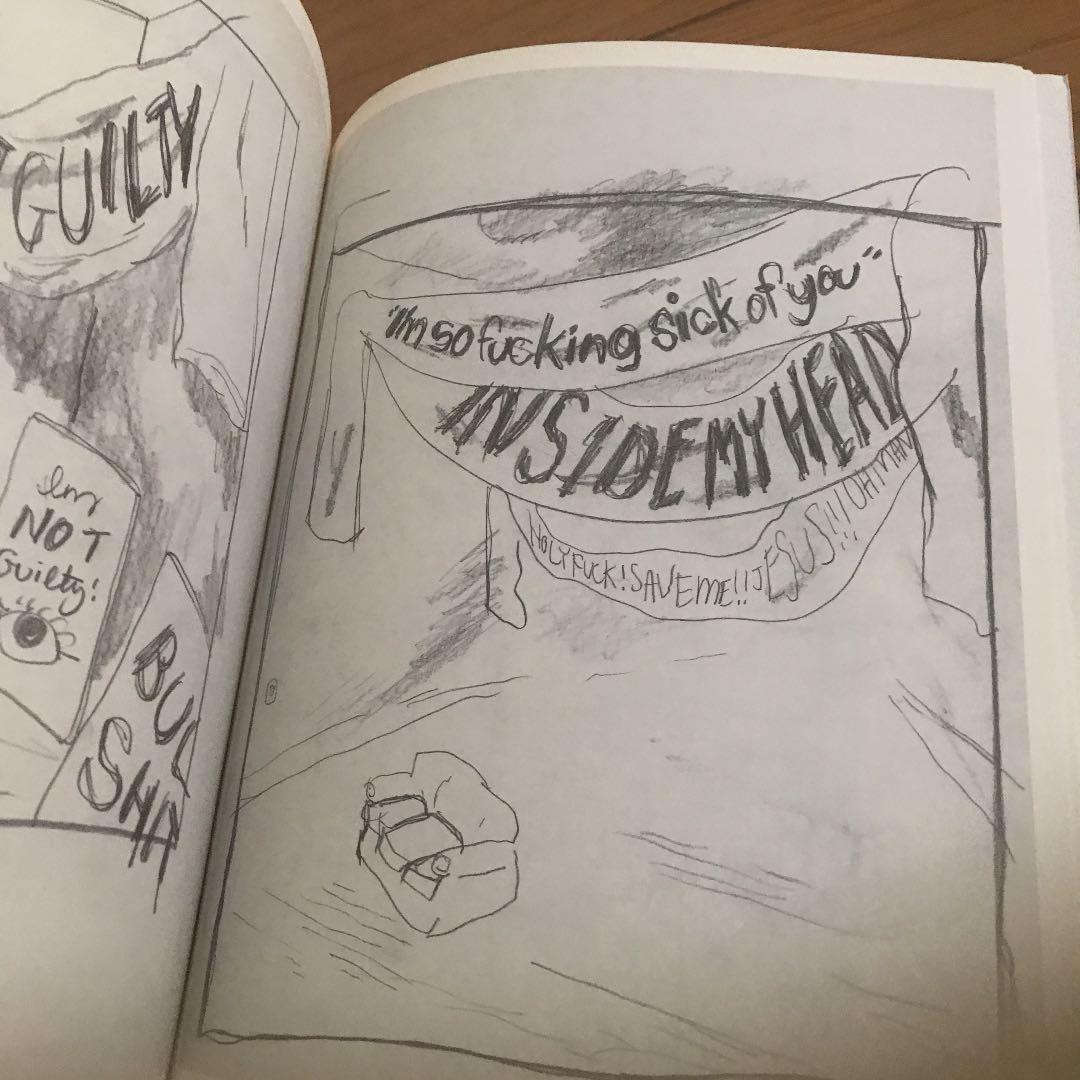 GUILTY
Im
NOT
Guilty!
"I'm so fucking sick of you"
INSIDE MY HEAD
HOLY FUCK! SAVE ME!! JESUS!!! OH MAN